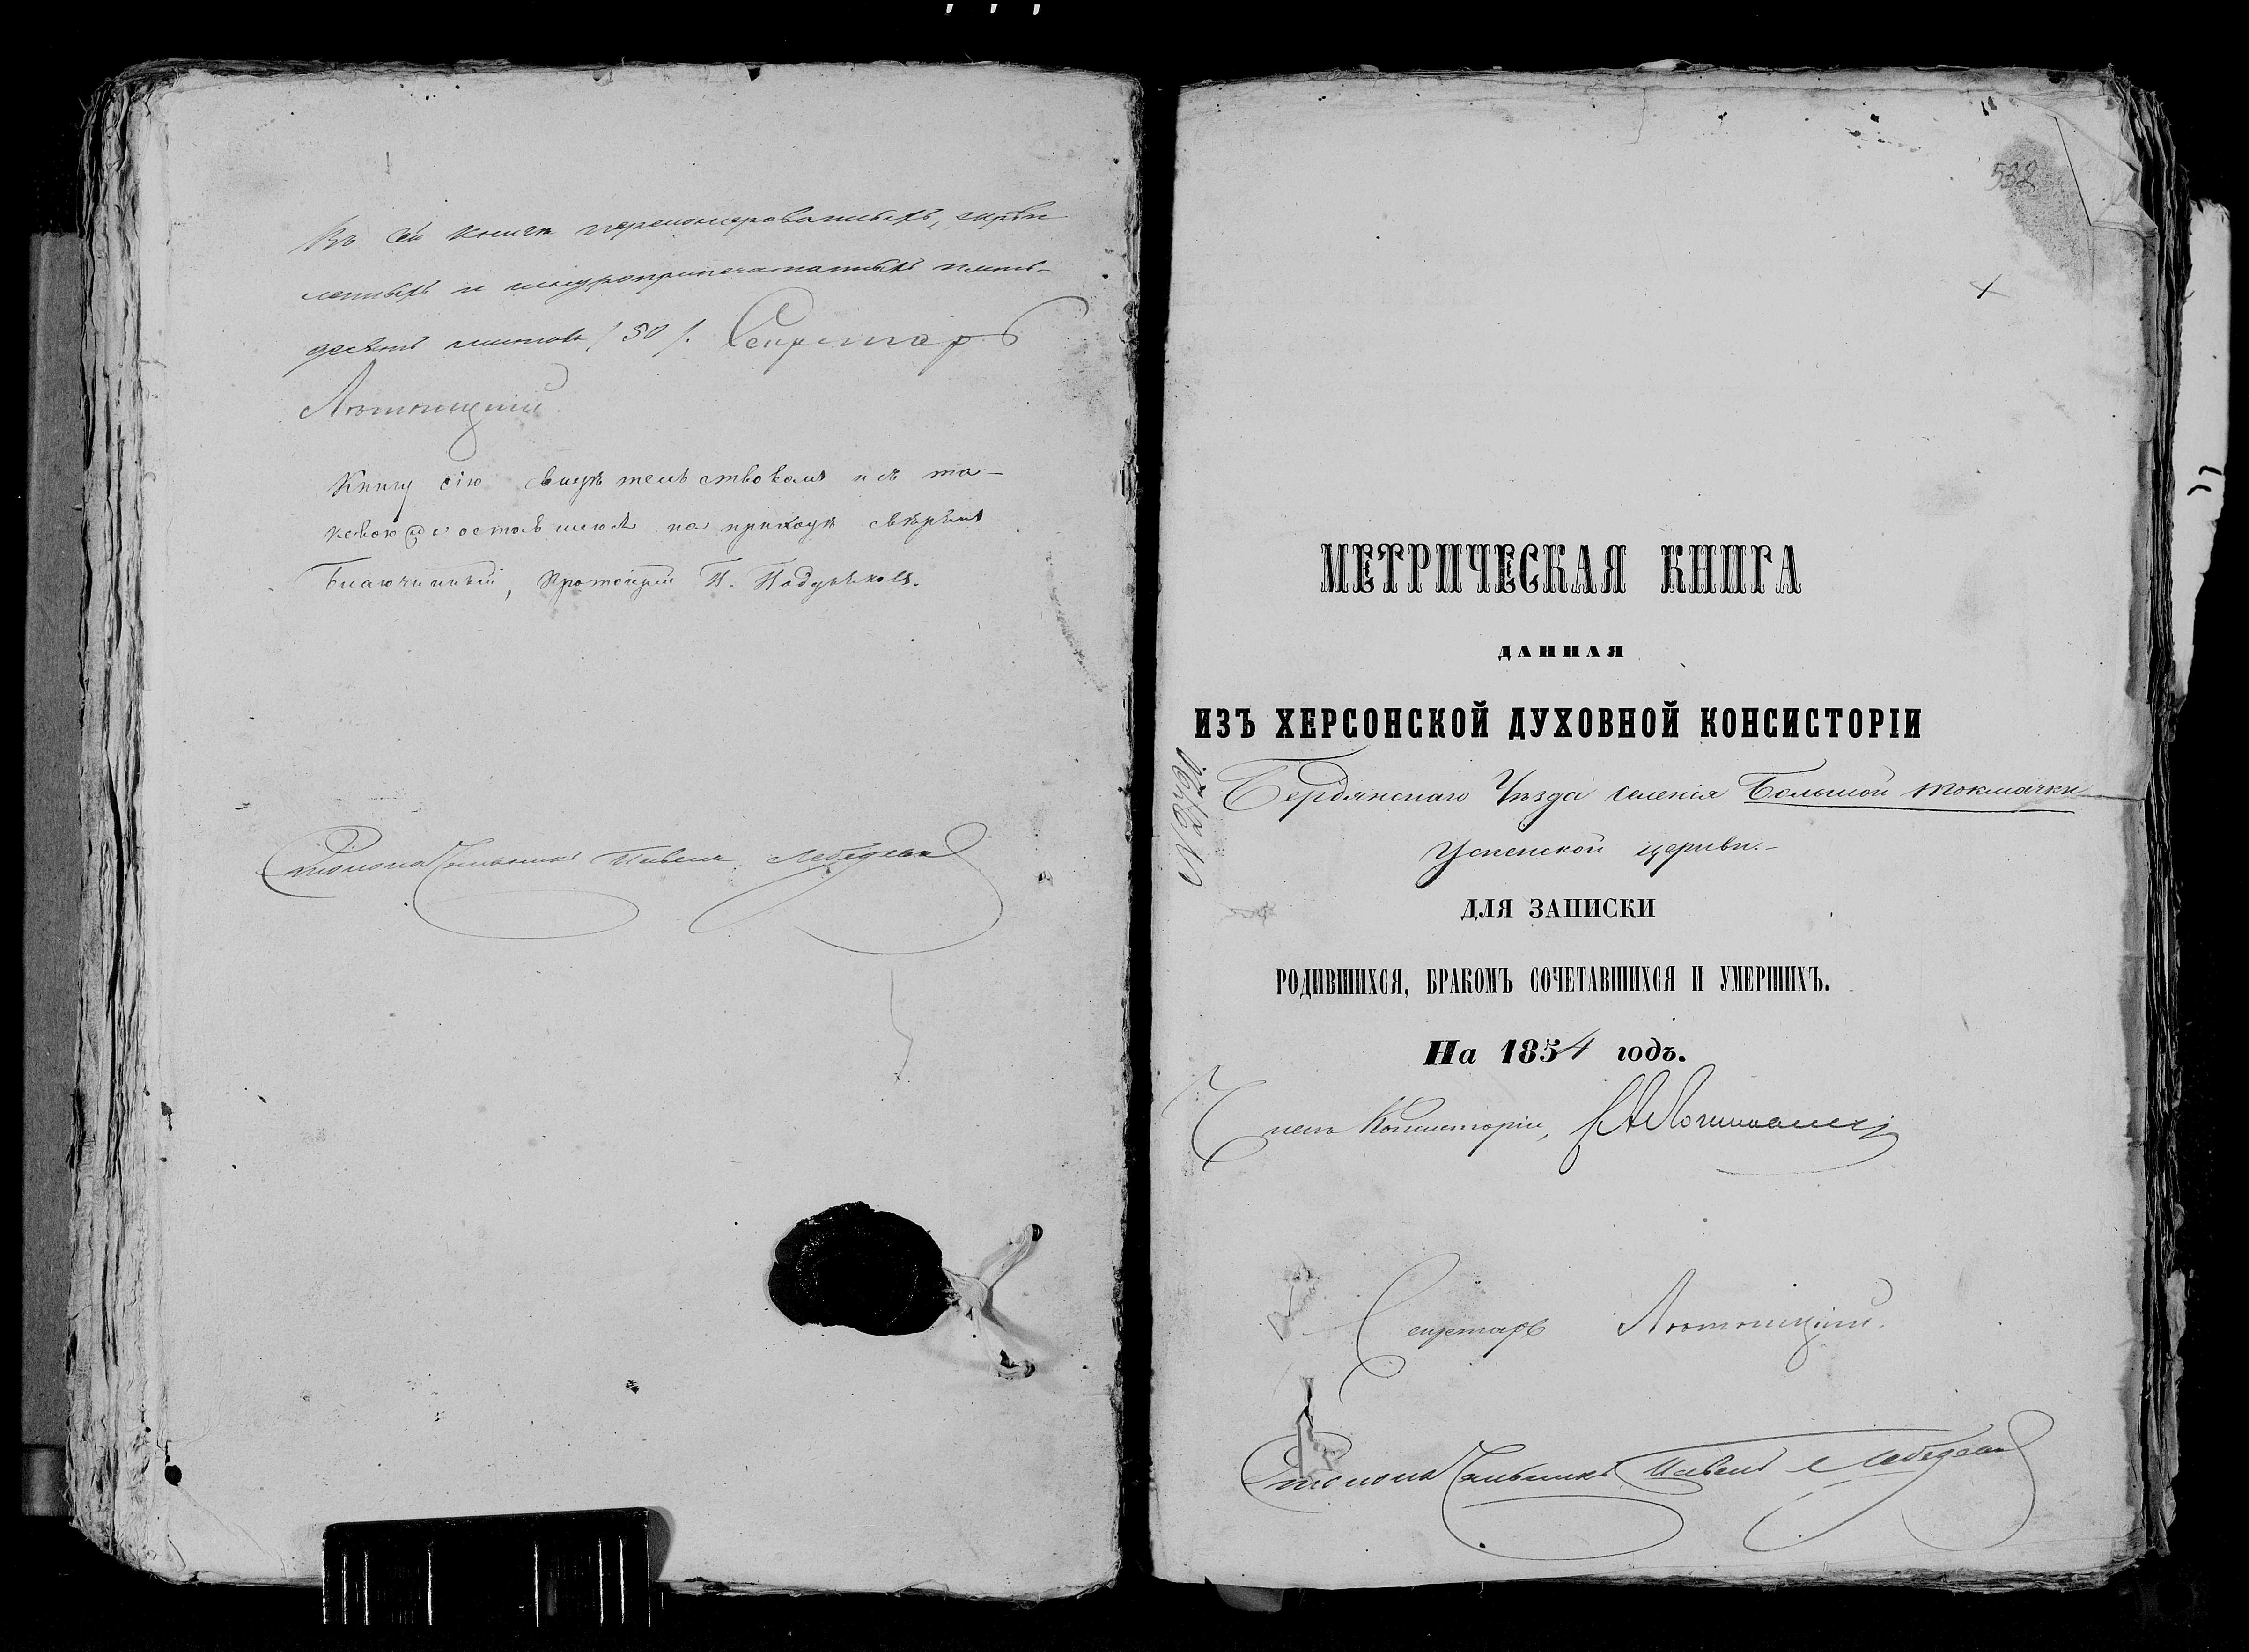 Въ сей книгѣ перенумерованныхъ, скрѣп
ленныхъ и шнуроприпечатанныхъ пять-
десятъ листовъ /50/. Секретарь
Лютницкій
Книгу сію свидѣтельствовалъ и съ та-
ковою же оставшеюся на приходѣ свѣрялъ
Благочинный, Протоіерей П.
Столоначальникъ Павелъ Лебедевъ
532
МЕТРИЧЕСКАЯ КНИГА
ДАННАЯ
ИЗЪ ХЕРСОНСКОЙ ДУХОВНОЙ КОНСИСТОРІИ
Бердянскаго Уѣзда селенія Большой Токмачки
Успенской церкви.-
ДЛЯ ЗАПИСКИ
РОДИВШИХСЯ, БРАКОМЪ СОЧЕТАВШИХСЯ И УМЕРШИХЪ.
На 1854 годъ.
Членъ Консисторіи,
Секретарь Лютницкій.
Столоначальникъ Павелъ Лебедевъ